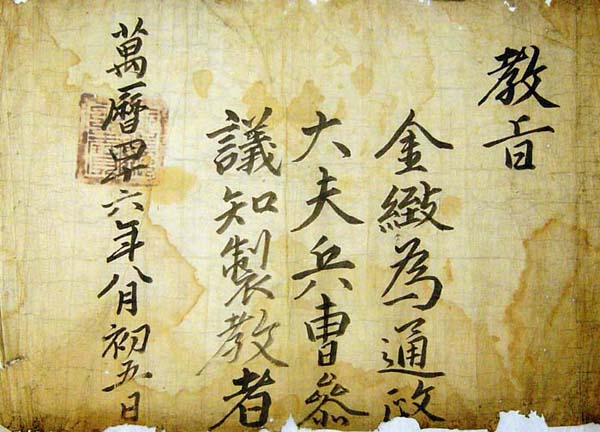 教旨
金緻為通政
大夫兵曺叅
議知製教者
萬曆四十六年八月初五日